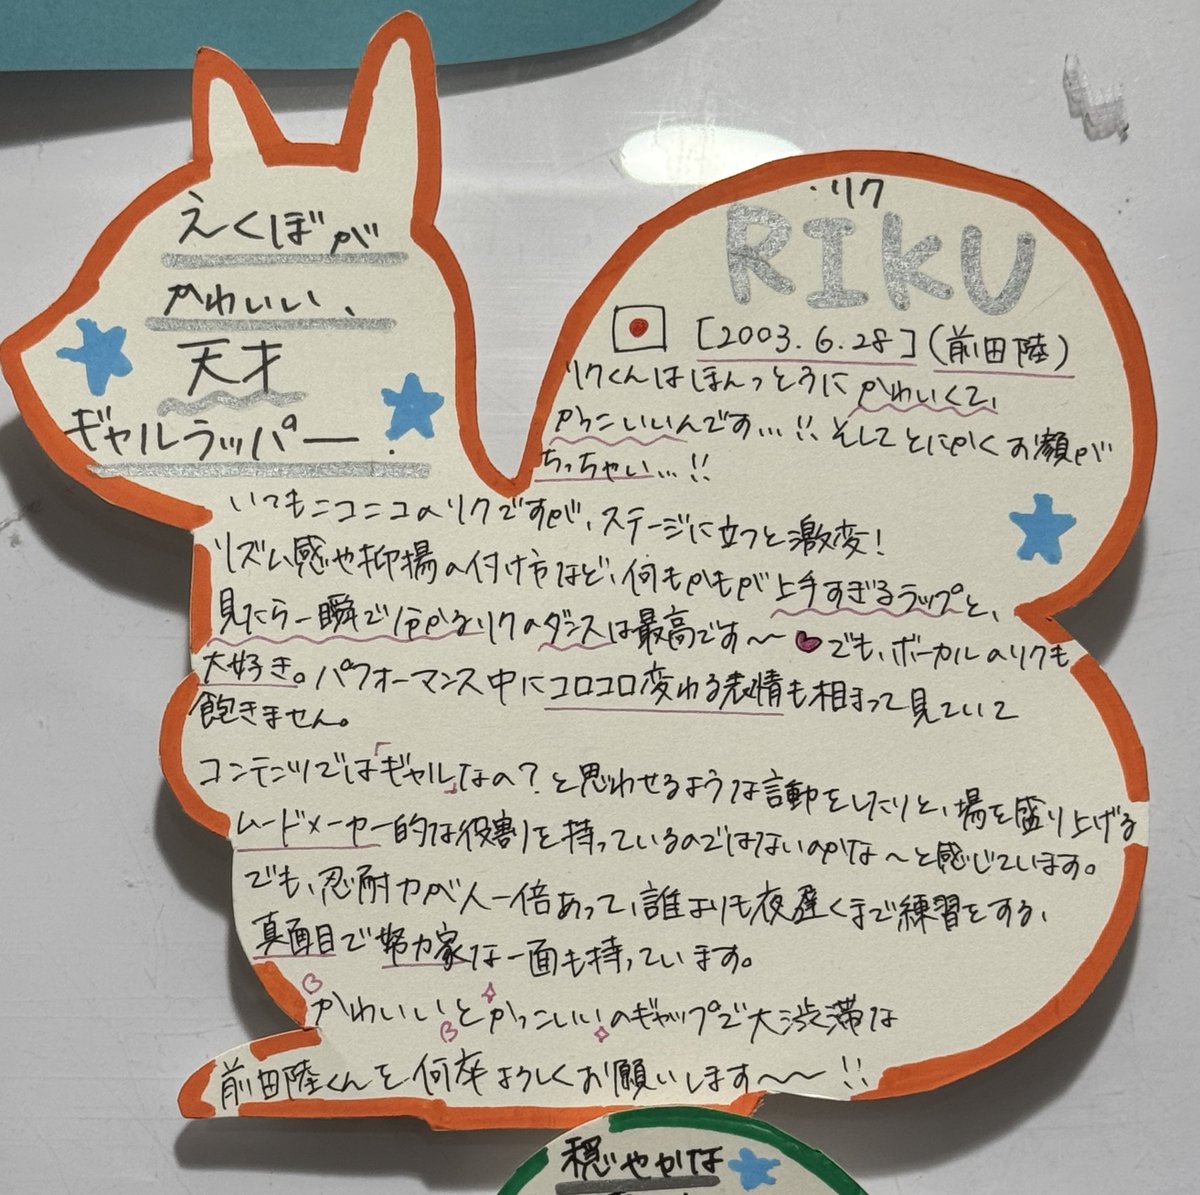 えくぼが
かわいい、
天才
ギャルラッパー.
・リク
RIKU
[2003.6.28](前田陸)
リクくんはほんっとうにかわいくて、
かっこいいんです…!! そしてとにかくお顔が
ちっちゃい…!!
いつもニコニコのリクですが、ステージに立つと激変!
リズム感や抑揚の付け方など、何もかもが上手すぎるラップと、
見たら一瞬で分かるリクのダンスは最高です〜♥でも、ボーカルのリクも
大好き。パフォーマンス中にコロコロ変わる表情も相まって見ていて
飽きません。
コンテンツでは「ギャルなの?」と思わせるような言動をしたりと、場を盛り上げる
ムードメーカー的な役割を持っているのではないのかな〜と感じています。
でも、忍耐力が人一倍あって、誰よりも夜遅くまで練習をする、
真面目で努力家な一面も持っています。
かわいいとかっこいいのギャップで大渋滞な
前田陸くんを何卒よろしくお願いします〜〜!!
穏やかな